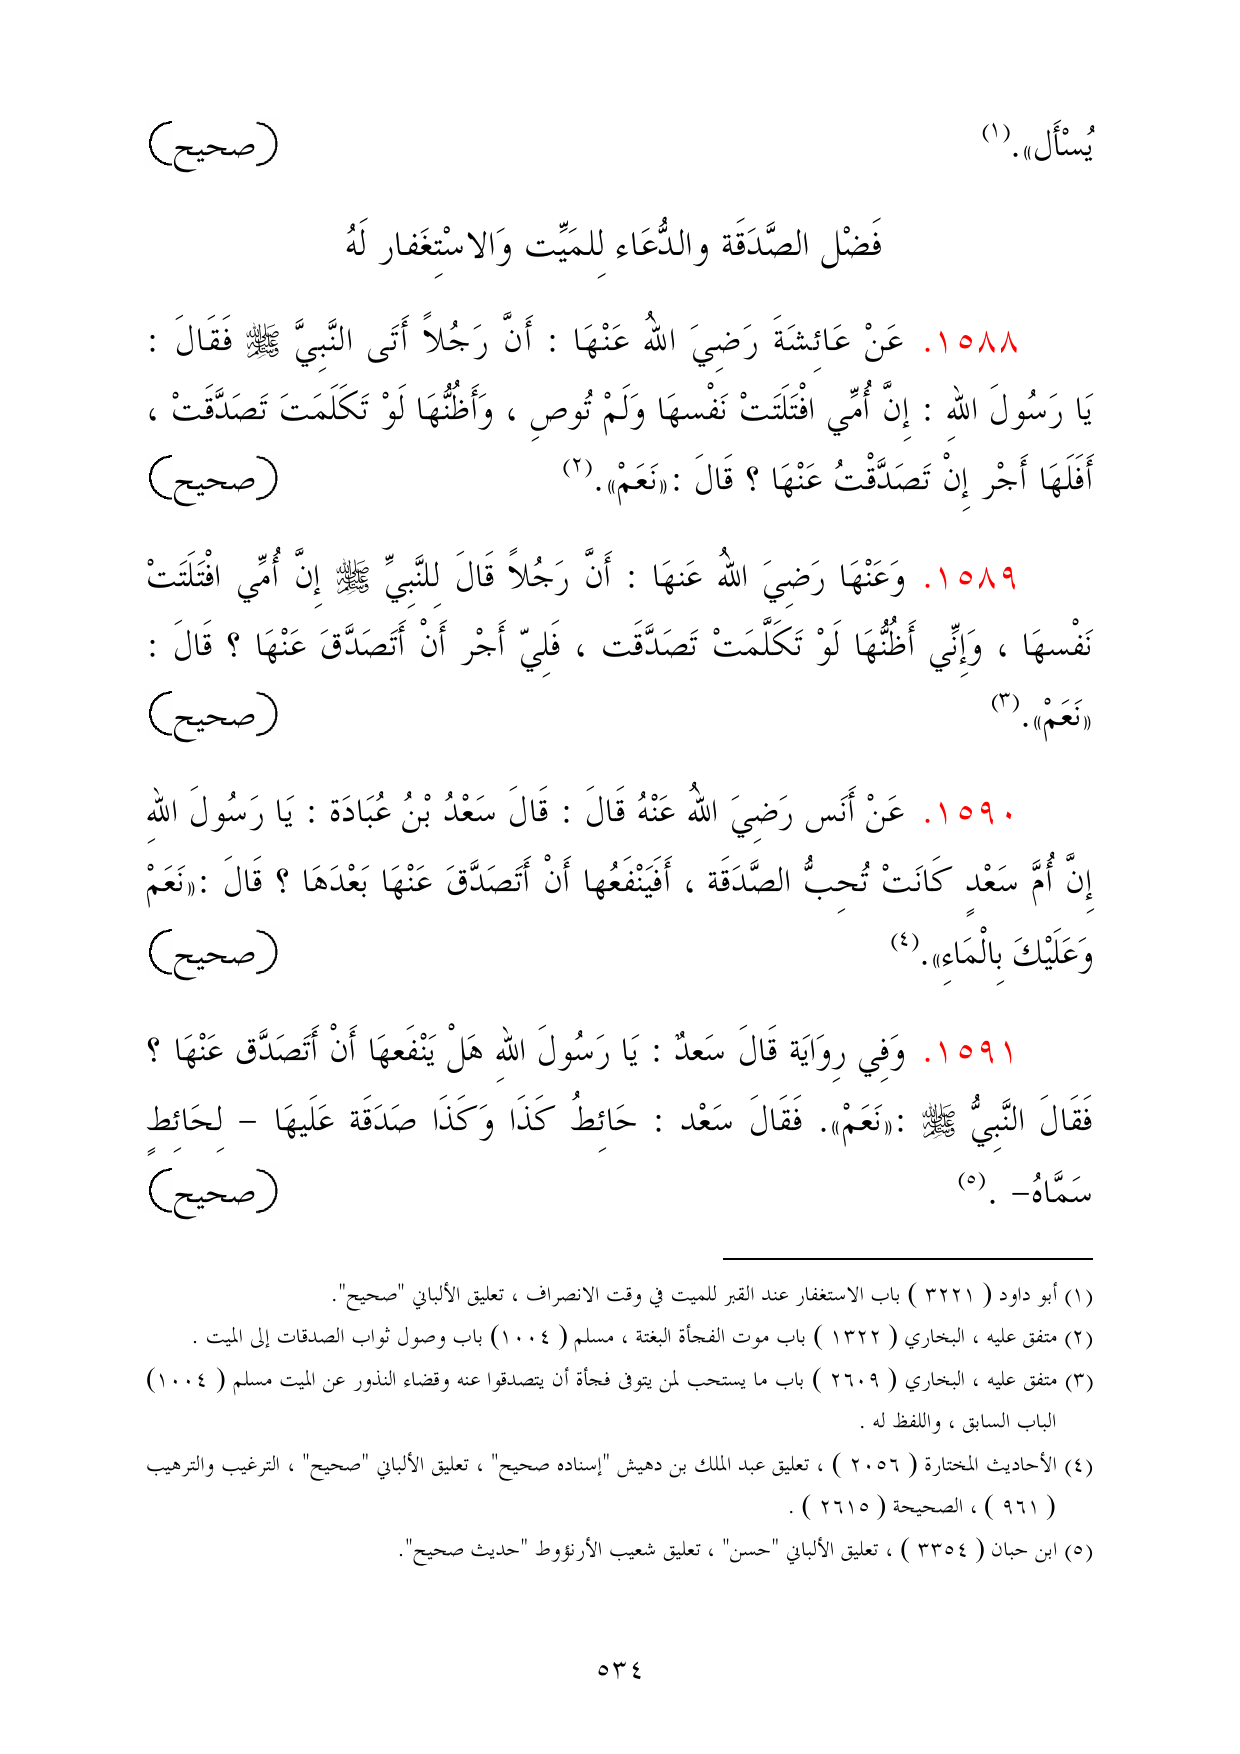 يُسْأَل».(١) (صحيح)
فَضْل الصَّدَقَة والدُّعَاء لِلمَيِّت وَالاسْتِغَفار لَهُ
١٥٨٨. عَنْ عَائِشَةَ رَضِيَ اللهُ عَنْهَا : أَنَّ رَجُلاً أَتَى النَّبِيَّ ﷺ فَقَالَ :
يَا رَسُولَ اللهِ : إِنَّ أُمِّي افْتَلَتَتْ نَفْسهَا وَلَمْ تُوصِ ، وَأَظُنُّهَا لَوْ تَكَلَمَتَ تَصَدَّقَتْ ،
أَفَلَهَا أَجْر إِنْ تَصَدَّقْتُ عَنْهَا ؟ قَالَ :«نَعَمْ».(٢) (صحيح)
١٥٨٩. وَعَنْهَا رَضِيَ اللهُ عَنهَا : أَنَّ رَجُلاً قَالَ لِلنَّبِيِّ ﷺ إِنَّ أُمِّي افْتَلَتَتْ
نَفْسهَا ، وَإِنِّي أَظُنُّهَا لَوْ تَكَلَّمَتْ تَصَدَّقَت ، فَلِيّ أَجْر أَنْ أَتَصَدَّقَ عَنْهَا ؟ قَالَ :
«نَعَمْ».(٣) (صحيح)
١٥٩٠. عَنْ أَنَس رَضِيَ اللهُ عَنْهُ قَالَ : قَالَ سَعْدُ بْنُ عُبَادَة : يَا رَسُولَ اللهِ
إِنَّ أُمَّ سَعْدٍ كَانَتْ تُحِبُّ الصَّدَقَة ، أَفَيَنْفَعُها أَنْ أَتَصَدَّقَ عَنْهَا بَعْدَهَا ؟ قَالَ :«نَعَمْ
وَعَلَيْكَ بِالْمَاءِ».(٤) (صحيح)
١٥٩١. وَفِي رِوَايَة قَالَ سَعدٌ : يَا رَسُولَ اللهِ هَلْ يَنْفَعهَا أَنْ أَتَصَدَّق عَنْهَا ؟
فَقَالَ النَّبِيُّ ﷺ :«نَعَمْ». فَقَالَ سَعْد : حَائِطُ كَذَا وَكَذَا صَدَقَة عَلَيهَا – لِحَائِطٍ
سَمَّاهُ– .(٥) (صحيح)
(١) أبو داود ( ٣٢٢١ ) باب الاستغفار عند القبر للميت في وقت الانصراف ، تعليق الألباني "صحيح".
(٢) متفق عليه ، البخاري ( ١٣٢٢ ) باب موت الفجأة البغتة ، مسلم ( ١٠٠٤) باب وصول ثواب الصدقات إلى الميت .
(٣) متفق عليه ، البخاري ( ٢٦٠٩ ) باب ما يستحب لمن يتوفى فجأة أن يتصدقوا عنه وقضاء النذور عن الميت مسلم ( ١٠٠٤)
الباب السابق ، واللفظ له .
(٤) الأحاديث المختارة ( ٢٠٥٦ ) ، تعليق عبد الملك بن دهيش "إسناده صحيح" ، تعليق الألباني "صحيح" ، الترغيب والترهيب
( ٩٦١ ) ، الصحيحة ( ٢٦١٥ ) .
(٥) ابن حبان ( ٣٣٥٤ ) ، تعليق الألباني "حسن" ، تعليق شعيب الأرنؤوط "حديث صحيح".
٥٣٤